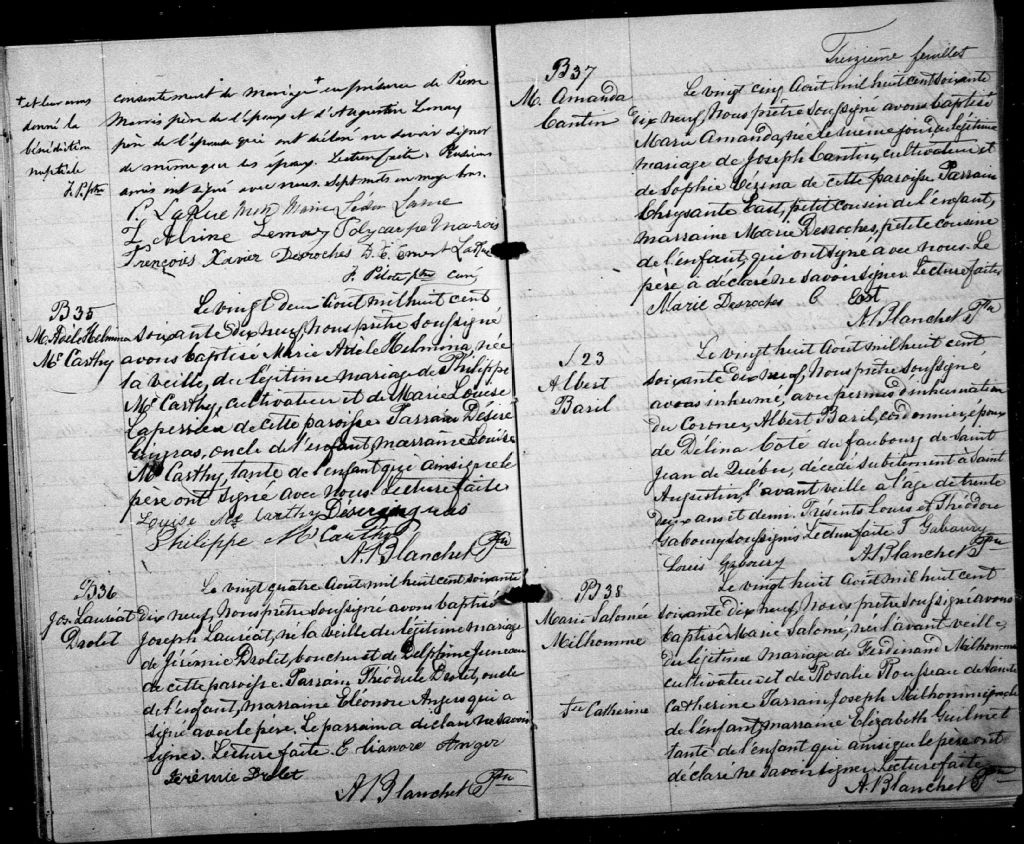 + et leur avons
donné la
bénédiction
nuptiale
F. P. ptre
consentement de mariage + en présence de Pierre
Marois père de l'époux et d'Augustin Lemay
père de l'épouse qui ont déclaré ne savoir signer
de même que les époux. Lecture faite. Plusieurs
amis ont signé avec nous. Sept mots en marge bons.
P. LaRue Marie Lédia Larue
F. Alvine Lemay Polycarpe Marois
François Xavier Desroches D. E. Ement LaRue
F. Pilote ptre curé
B35
M. Adèle Helmina
Mc Carthy
Le vingt deux Août mil huit cent
soixante dix neuf, Nous prêtre soussigné
avons baptisé Marie Adèle Helmina, née
la veille, du légitime mariage de Philippe
Mc Carthy, cultivateur et de Marie Louise
Laperrière de cette paroisse Parrain Désiré
Gingras, oncle de l'enfant, marraine Louise
Mc Carthy, tante de l'enfant qui ainsi que le
père ont signé avec nous. Lecture faite
Louise Mc Carthy Désiré gingras
Philippe Mc Carthy
A. Blanchet Ptre
B36
Jos. Lauréat
Drolet
Le vingt quatre Août mil huit cent soixante
Dix neuf, Nous prêtre soussigné avons baptisé
Joseph Lauréat, né la veille du légitime mariage
de Jérémie Drolet, boucher et de Delphine Juneau
de cette paroisse. Parrain Théodule Drolet, oncle
de l'enfant, marraine Eléonore Angers qui a
signé avec le père. Le parrain a déclaré ne savoir
signer. Lecture faite E léanore Anger
Jérémie Drolet
A. Blanchet Ptre
Treizième feuillet
B37
M. Amanda
Cantin
Le vingt cinq Août mil huit cent soixante
Dix neuf, Nous prêtre soussigné avons baptisé
Marie Amanda, née le même jour du légitime
mariage de Joseph Cantin, cultivateur et
de Sophie Vézina de cette paroisse Parrain
Chrysante East, petit cousin de l'enfant,
marraine Marie Desroches, petite cousine
de l'enfant, qui ont signé avec nous. Le
père a déclaré ne savoir signer. Lecture faite
Marie Desroches C East
A. Blanchet Ptre
S 23
Albert
Baril
Le vingt huit Août mil huit cent
soixante Dix neuf, Nous prêtre soussigné
avons inhumé, avec permis d'inhumation
du Coroner, Albert Baril, cordonnier, époux
de Délina Coté du faubourg de Saint
Jean de Québec, décédé subitement à Saint
Augustin, l'avant veille à l'age de trente
deux ans et demi. Présents Louis et Théodore
Gaboury soussignés Lecture faite T Gaboury
Louis Gaboury A. Blanchet Ptre
B38
Marie Salomé
Milhomme
Ste Catherine
Le vingt huit Août mil huit cent
soixante dix neuf, Nous prêtre soussigné avons
baptisé Marie Salomé, née l'avant veille,
du légitime mariage de Ferdinand Milhomme
cultivateur et de Rosalie Rousseau de Sainte
Catherine Parrain Joseph Milhomme, oncle
de l'enfant, marraine Elizabeth Guilmet
tante de l'enfant qui ainsi que le père ont
déclaré ne savoir signer. Lecture faite
A. Blanchet Ptre